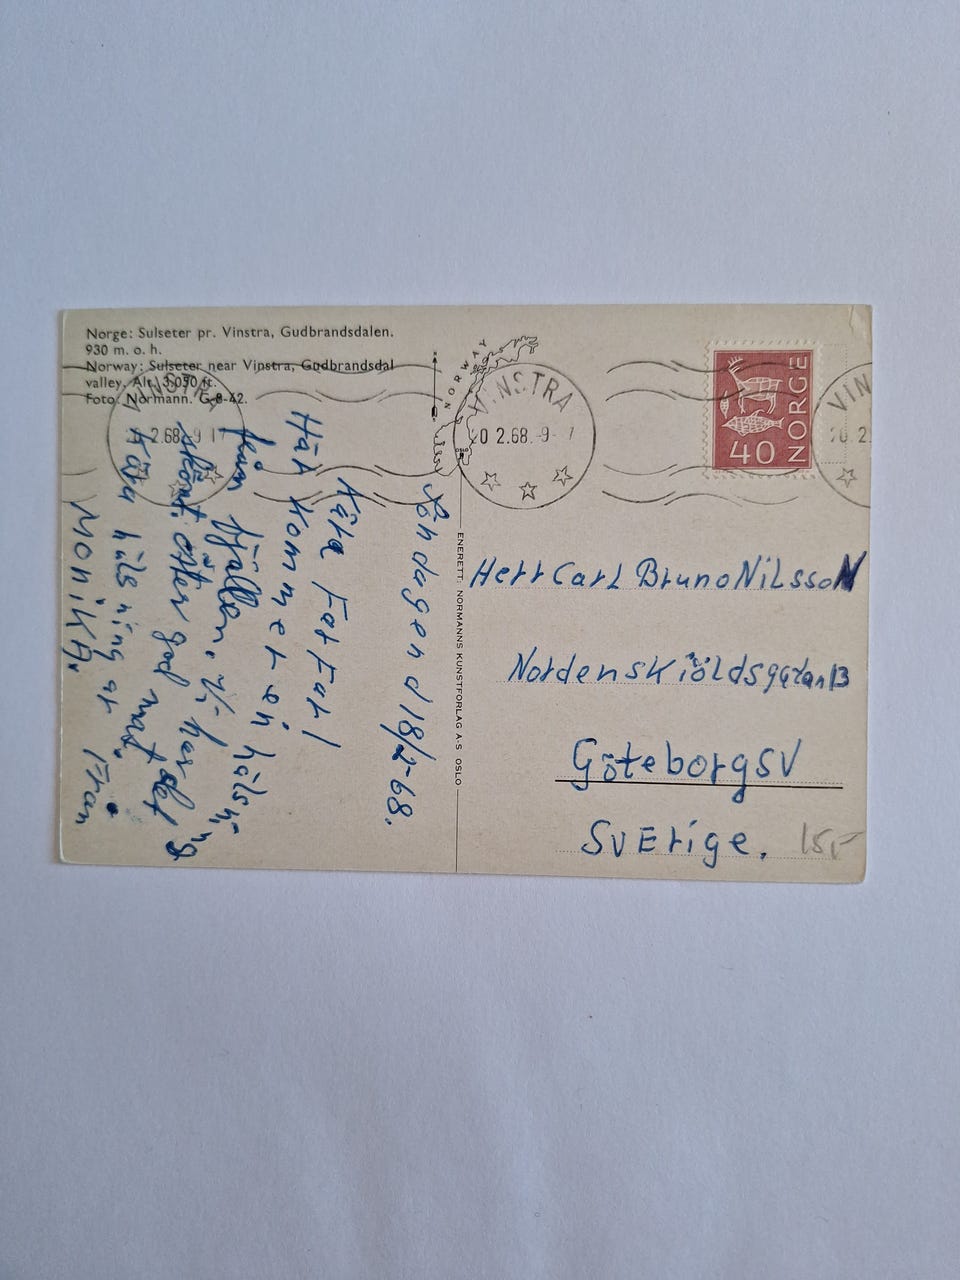 Norge: Sulseter pr. Vinstra, Gudbrandsdalen.
930 m. o. h.
Norway: Sulseter near Vinstra, Gudbrandsdal
valley. Alt. 3,050 ft.
Foto: Normann. G-8-42.
NORWAY
OSLO
VINSTRA
20 2.68.-9-17
VINSTRA
2.68.-9 17
VIN
20.2.
NORGE
40
ENERETT: NORMANNS KUNSTFORLAG A-S OSLO
Söndagen d 18/2-68.
Kära Farfar!
Här kommer en hälsning
från fjällen. Vi har det
skönt. Öster god mat.
Kära hälsningar från
Monika.
Herr Carl Bruno Nilsson
Nordenskiöldsgatan 13
Göteborg SV
Sverige.
15,-